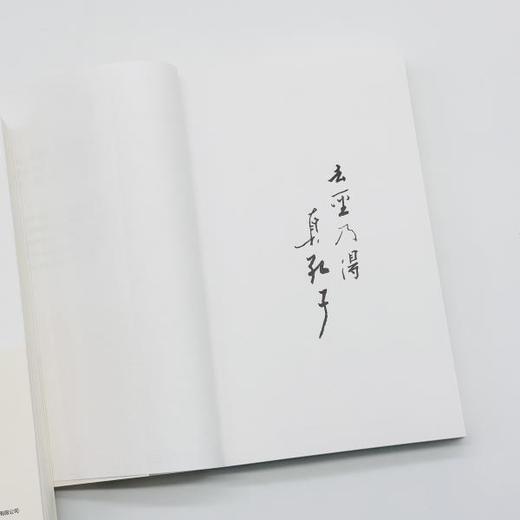 去圣乃得
真孔子
有限公司